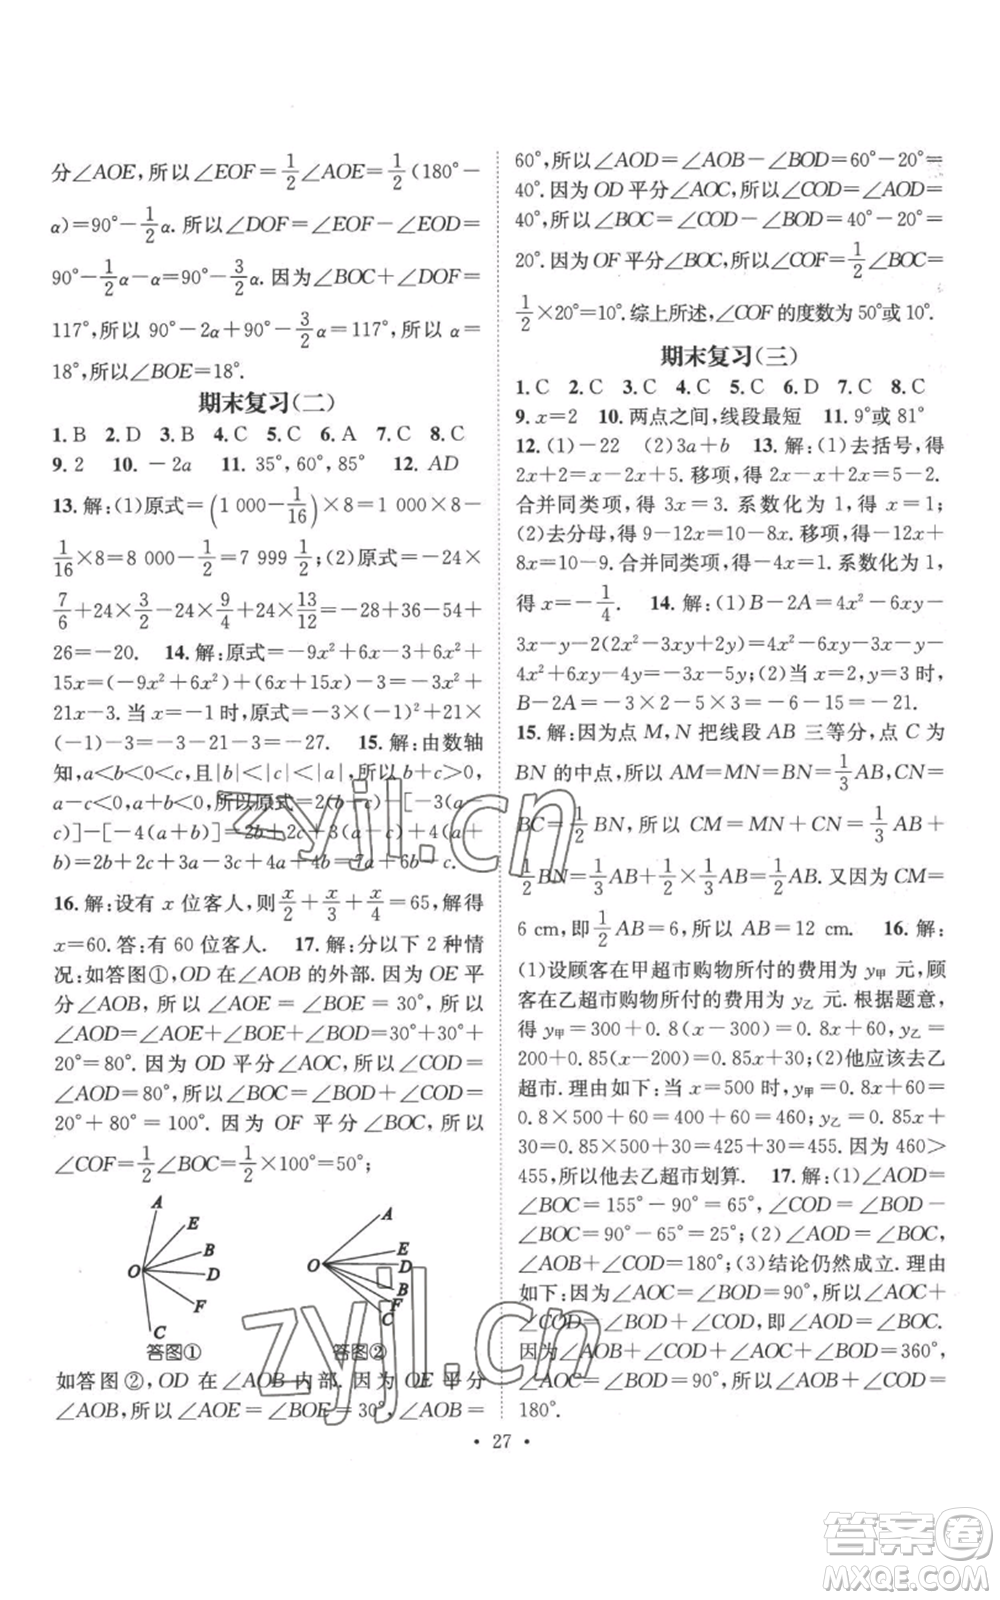 分∠AOE,所以∠EOF=1/2∠AOE=1/2(180°-
α)=90°-1/2α.所以∠DOF=∠EOF-∠EOD=
90°-1/2α-α=90°-3/2α.因为∠BOC+∠DOF=
117°,所以 90°-2α+90°-3/2α=117°,所以 α=
18°,所以∠BOE=18°.
期末复习(二)
1.B 2.D 3.B 4.C 5.C 6.A 7.C 8.C
9.2 10.-2a 11.35°,60°,85° 12.AD
13.解:(1)原式=(1 000-1/16)×8=1 000×8-
1/16×8=8 000-1/2=7 999 1/2;(2)原式=-24×
7/6+24×3/2-24×9/4+24×13/12=-28+36-54+
26=-20. 14.解:原式=-9x²+6x-3+6x²+
15x=(-9x²+6x²)+(6x+15x)-3=-3x²+
21x-3.当 x=-1 时,原式=-3×(-1)²+21×
(-1)-3=-3-21-3=-27. 15.解:由数轴
知,a<b<0<c,且|b|<|c|<|a|,所以b+c>0,
a-c<0,a+b<0,所以原式=2(b+c)-[-3(a-
c)]-[-4(a+b)]=2b+2c+3(a-c)+4(a+
b)=2b+2c+3a-3c+4a+4b=7a+6b-c.
16.解:设有 x 位客人,则x/2+x/3+x/4=65,解得
x=60.答:有 60 位客人. 17.解:分以下 2 种情
况:如答图①,OD 在∠AOB 的外部.因为 OE 平
分∠AOB,所以∠AOE=∠BOE=30°,所以
∠AOD=∠AOE+∠BOE+∠BOD=30°+30°+
20°=80°.因为 OD 平分∠AOC,所以∠COD=
∠AOD=80°,所以∠BOC=∠BOD+∠COD=
20°+80°=100°.因为 OF 平分∠BOC,所以
∠COF=1/2∠BOC=1/2×100°=50°;
A
E
B
O
D
F
C
答图①
A
E
O
D
B
F
C
答图②
如答图②,OD 在∠AOB 内部.因为 OE 平分
∠AOB,所以∠AOE=∠BOE=30°,∠AOB=
60°,所以∠AOD=∠AOB-∠BOD=60°-20°=
40°.因为 OD 平分∠AOC,所以∠COD=∠AOD=
40°,所以∠BOC=∠COD-∠BOD=40°-20°=
20°.因为 OF 平分∠BOC,所以∠COF=1/2∠BOC=
1/2×20°=10°.综上所述,∠COF的度数为50°或10°.
期末复习(三)
1.C 2.C 3.C 4.C 5.C 6.D 7.C 8.C
9.x=2 10.两点之间,线段最短 11.9°或 81°
12.(1)-22 (2)3a+b 13.解:(1)去括号,得
2x+2=x-2x+5.移项,得 2x-x+2x=5-2.
合并同类项,得 3x=3.系数化为 1,得 x=1;
(2)去分母,得 9-12x=10-8x.移项,得-12x+
8x=10-9.合并同类项,得-4x=1.系数化为1,
得 x=-1/4. 14.解:(1)B-2A=4x²-6xy-
3x-y-2(2x²-3xy+2y)=4x²-6xy-3x-y-
4x²+6xy-4y=-3x-5y;(2)当 x=2,y=3 时,
B-2A=-3×2-5×3=-6-15=-21.
15.解:因为点 M,N 把线段 AB 三等分,点 C 为
BN 的中点,所以 AM=MN=BN=1/3AB,CN=
BC=1/2BN,所以 CM=MN+CN=1/3AB+
1/2BN=1/3AB+1/2×1/3AB=1/2AB.又因为 CM=
6 cm,即1/2AB=6,所以 AB=12 cm. 16.解:
(1)设顾客在甲超市购物所付的费用为 y甲 元,顾
客在乙超市购物所付的费用为 y乙 元.根据题意,
得 y甲=300+0.8(x-300)=0.8x+60,y乙=
200+0.85(x-200)=0.85x+30;(2)他应该去乙
超市.理由如下:当 x=500 时,y甲=0.8x+60=
0.8×500+60=400+60=460;y乙=0.85x+
30=0.85×500+30=425+30=455.因为 460>
455,所以他去乙超市划算. 17.解:(1)∠AOD=
∠BOC=155°-90°=65°,∠COD=∠BOD-
∠BOC=90°-65°=25°;(2)∠AOD=∠BOC,
∠AOB+∠COD=180°;(3)结论仍然成立.理由
如下:因为∠AOC=∠BOD=90°,所以∠AOC+
∠COD=∠BOD+∠COD,即∠AOD=∠BOC.
因为∠AOC+∠COD+∠BOD+∠AOB=360°,
∠AOC=∠BOD=90°,所以∠AOB+∠COD=
180°.
• 27 •
zyjl.cn
zyjl.cn
答案卷
MXQE.COM